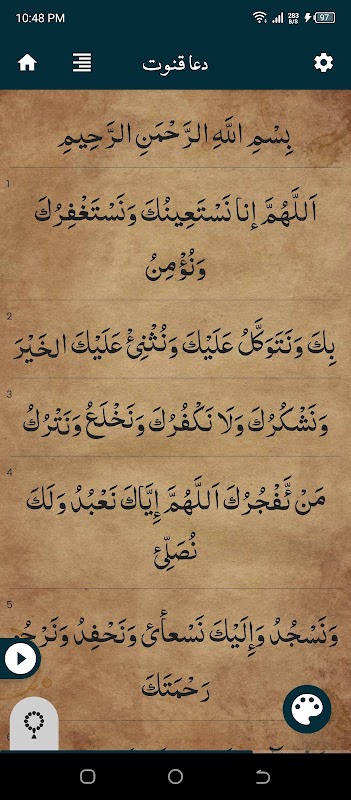 10:48 PM
283 B/S
97
دعا قنوت
بِسْمِ اللَّهِ الرَّحْمَنِ الرَّحِيمِ
1
اَللَّهُمَّ إنا نَسْتَعِينُكَ وَنَسْتَغْفِرُكَ
وَنُؤْمِنُ
2
بِكَ وَنَتَوَكَّلُ عَلَيْكَ وَنُثْنِئْ عَلَيْكَ الخَيْرَ
3
وَنَشْكُرُكَ وَلَا نَكْفُرُكَ وَنَخْلَعُ وَنَتْرُكُ
4
مَنْ ئَّفْجُرُكَ اَللَّهُمَّ إِيَّاكَ نَعْبُدُ وَلَكَ
نُصَلِّئ
5
وَنَسْجُدُ وَإِلَيْكَ نَسْعأئ وَنَحْفِدُ وَنَرْجُو
رَحْمَتَكَ